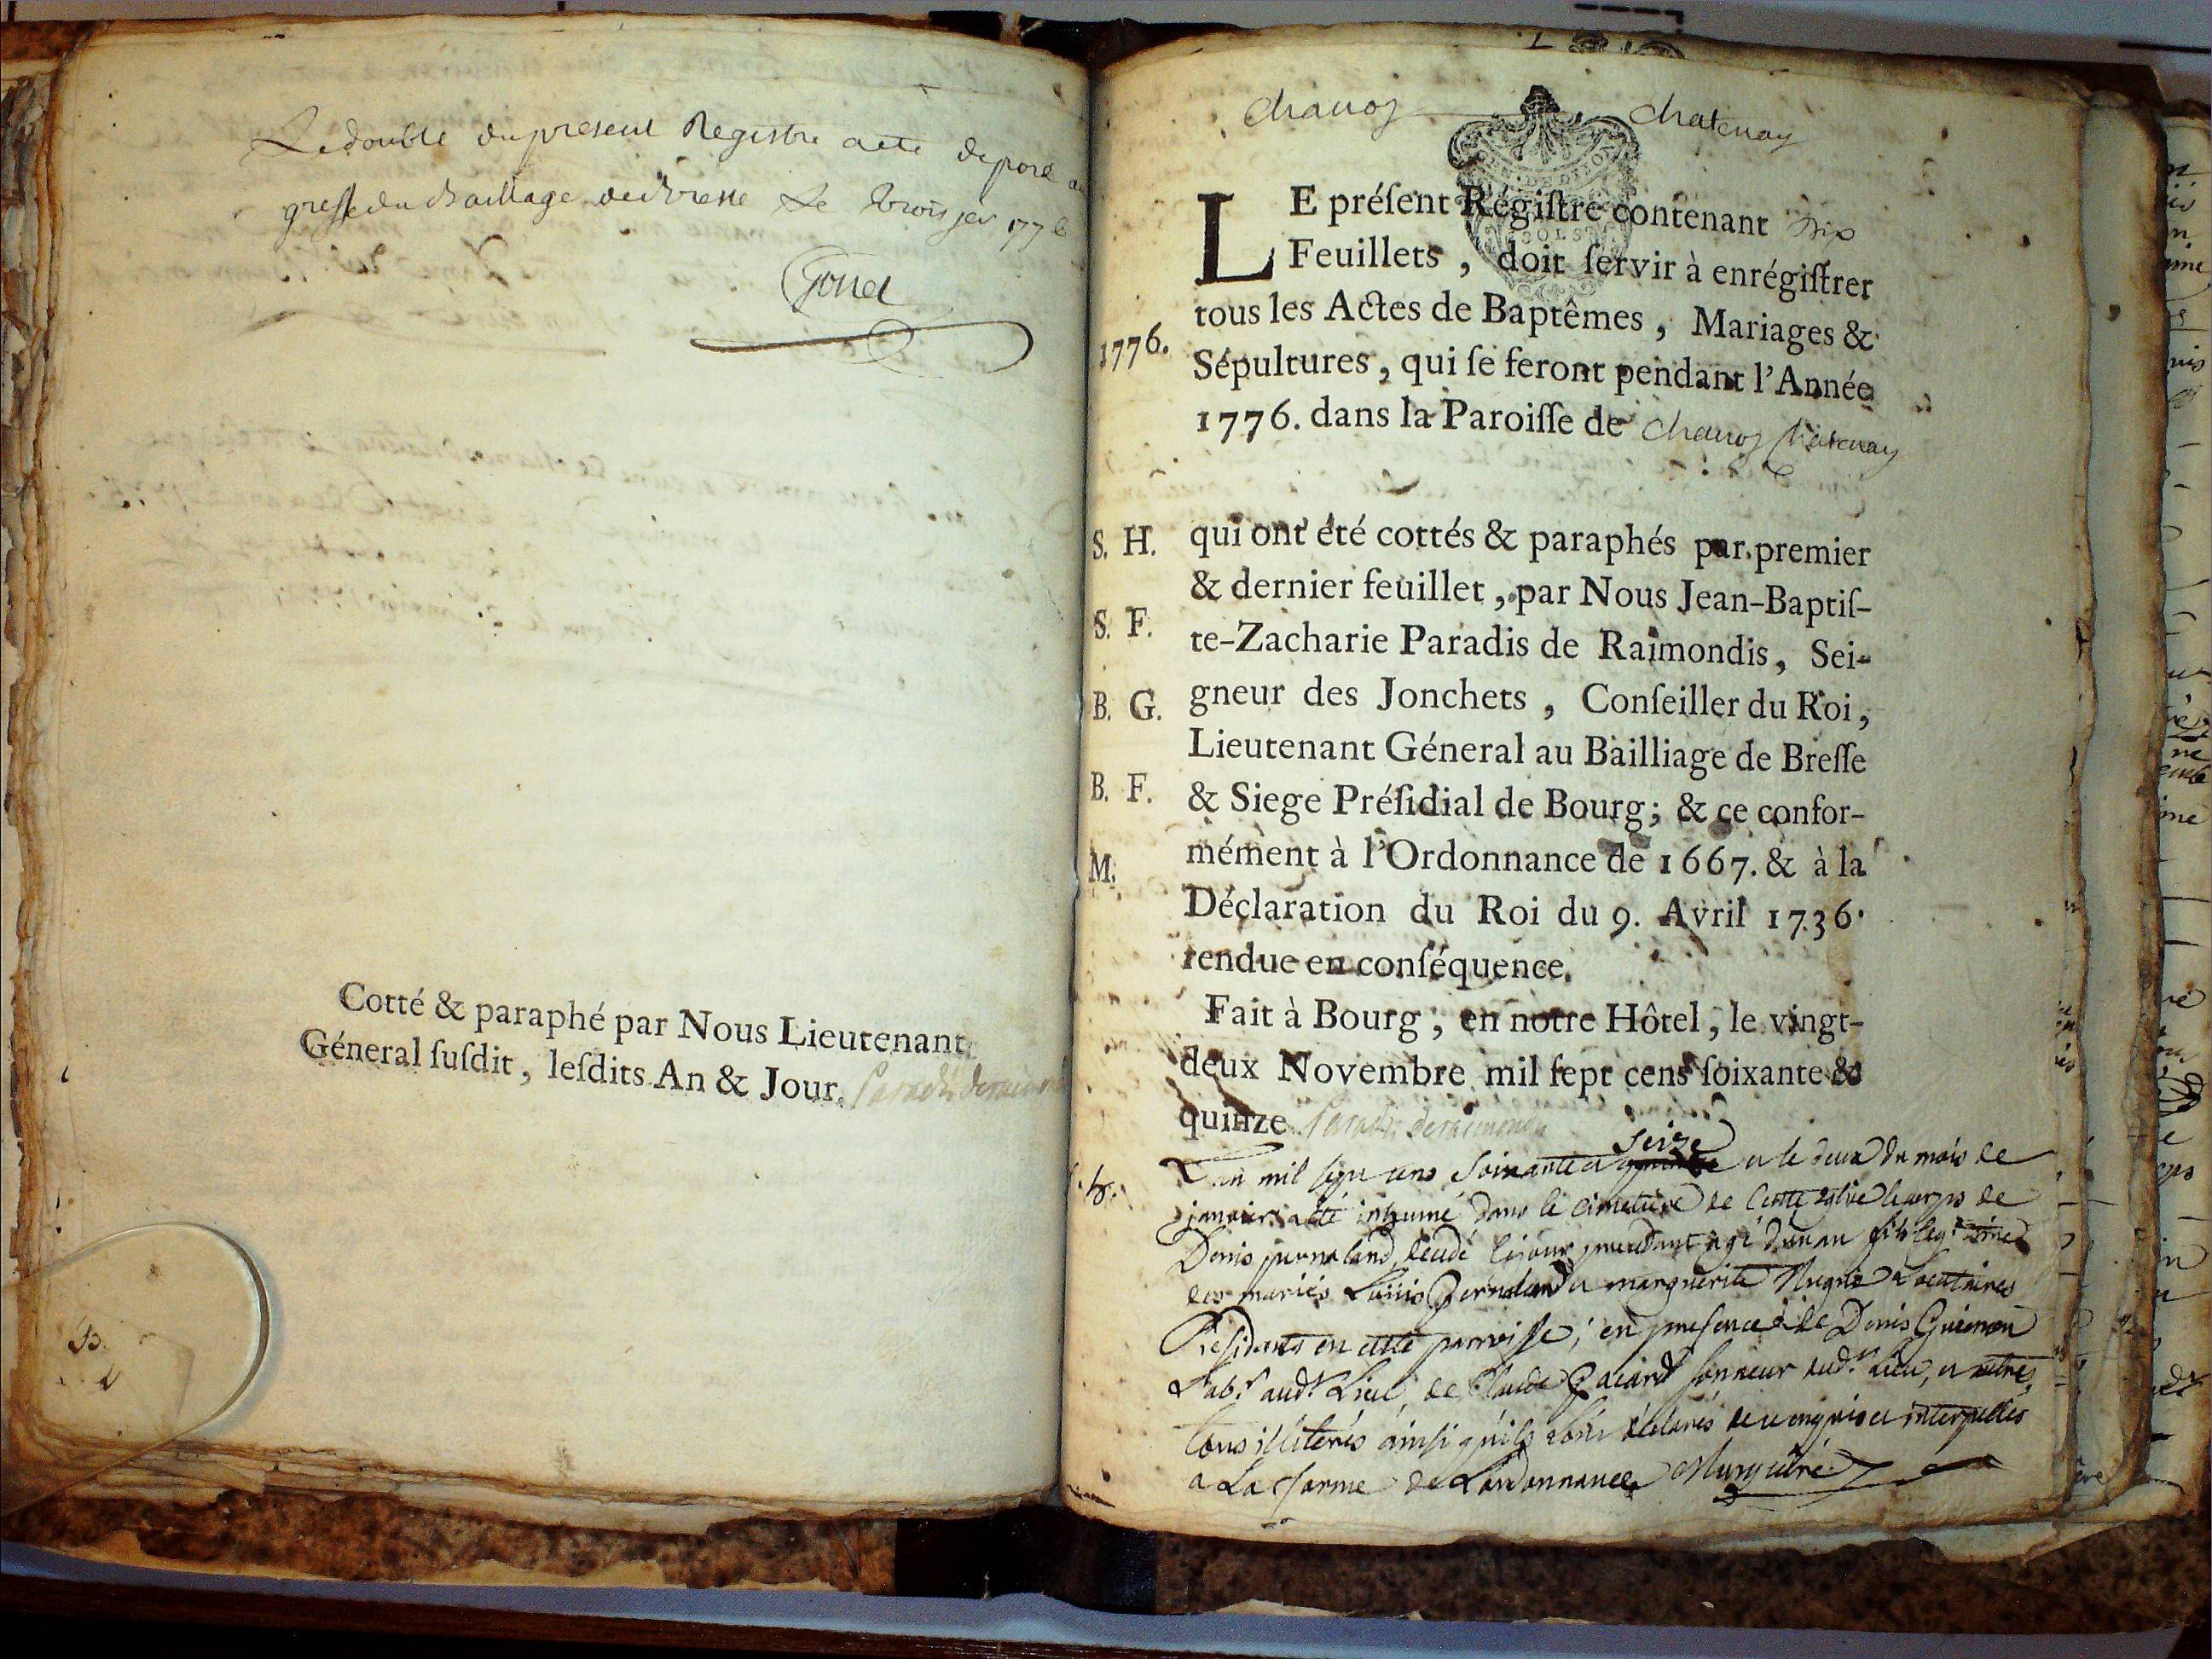 Le double du present Registre a ete deposé au
greffe du Bailliage de Bresse Le trois jer 1776
Gonet
Cotté & paraphé par Nous Lieutenant
Géneral ſuſdit, leſdits An & Jour. Paradis deraimondis
Chanoz Chatenay
LE préſent Régiſtre contenant Dix
Feuillets, doit ſervir à enrégiſtrer
tous les Actes de Baptêmes, Mariages &
1776. Sépultures, qui ſe feront pendant l'Année
1776. dans la Paroiſſe de chanoz Chatenay
S. H. qui ont été cottés & paraphés par premier
& dernier feuillet, par Nous Jean-Baptiſ-
S. F. te-Zacharie Paradis de Raimondis, Sei-
B. G. gneur des Jonchets, Conſeiller du Roi,
Lieutenant Géneral au Bailliage de Breſſe
B. F. & Siege Préſidial de Bourg; & ce confor-
M. mément à l'Ordonnance de 1667. & à la
Déclaration du Roi du 9. Avril 1736.
rendue en conſéquence.
Fait à Bourg, en notre Hôtel, le vingt-
deux Novembre mil ſept cens ſoixante &
quinze Paradis deraimondis
seize
L'an mil sept cens soixante et quinze et le deux du mois de
S. h. janvier a été inhumé dans le cimetiere de cette eglise le corps de
Denis decedé le jour precedant agé d'un an fils legitime
des mariés Louis et marguerite
Residants en cette parroisse, en presence de Denis Guienon
Labr audt Lieu, de Claude sonneur audt Lieu, et autres
tous illiterés ainsi qu'ils ont declarés de ce enquis et interpellés
a La forme de Lordonnance